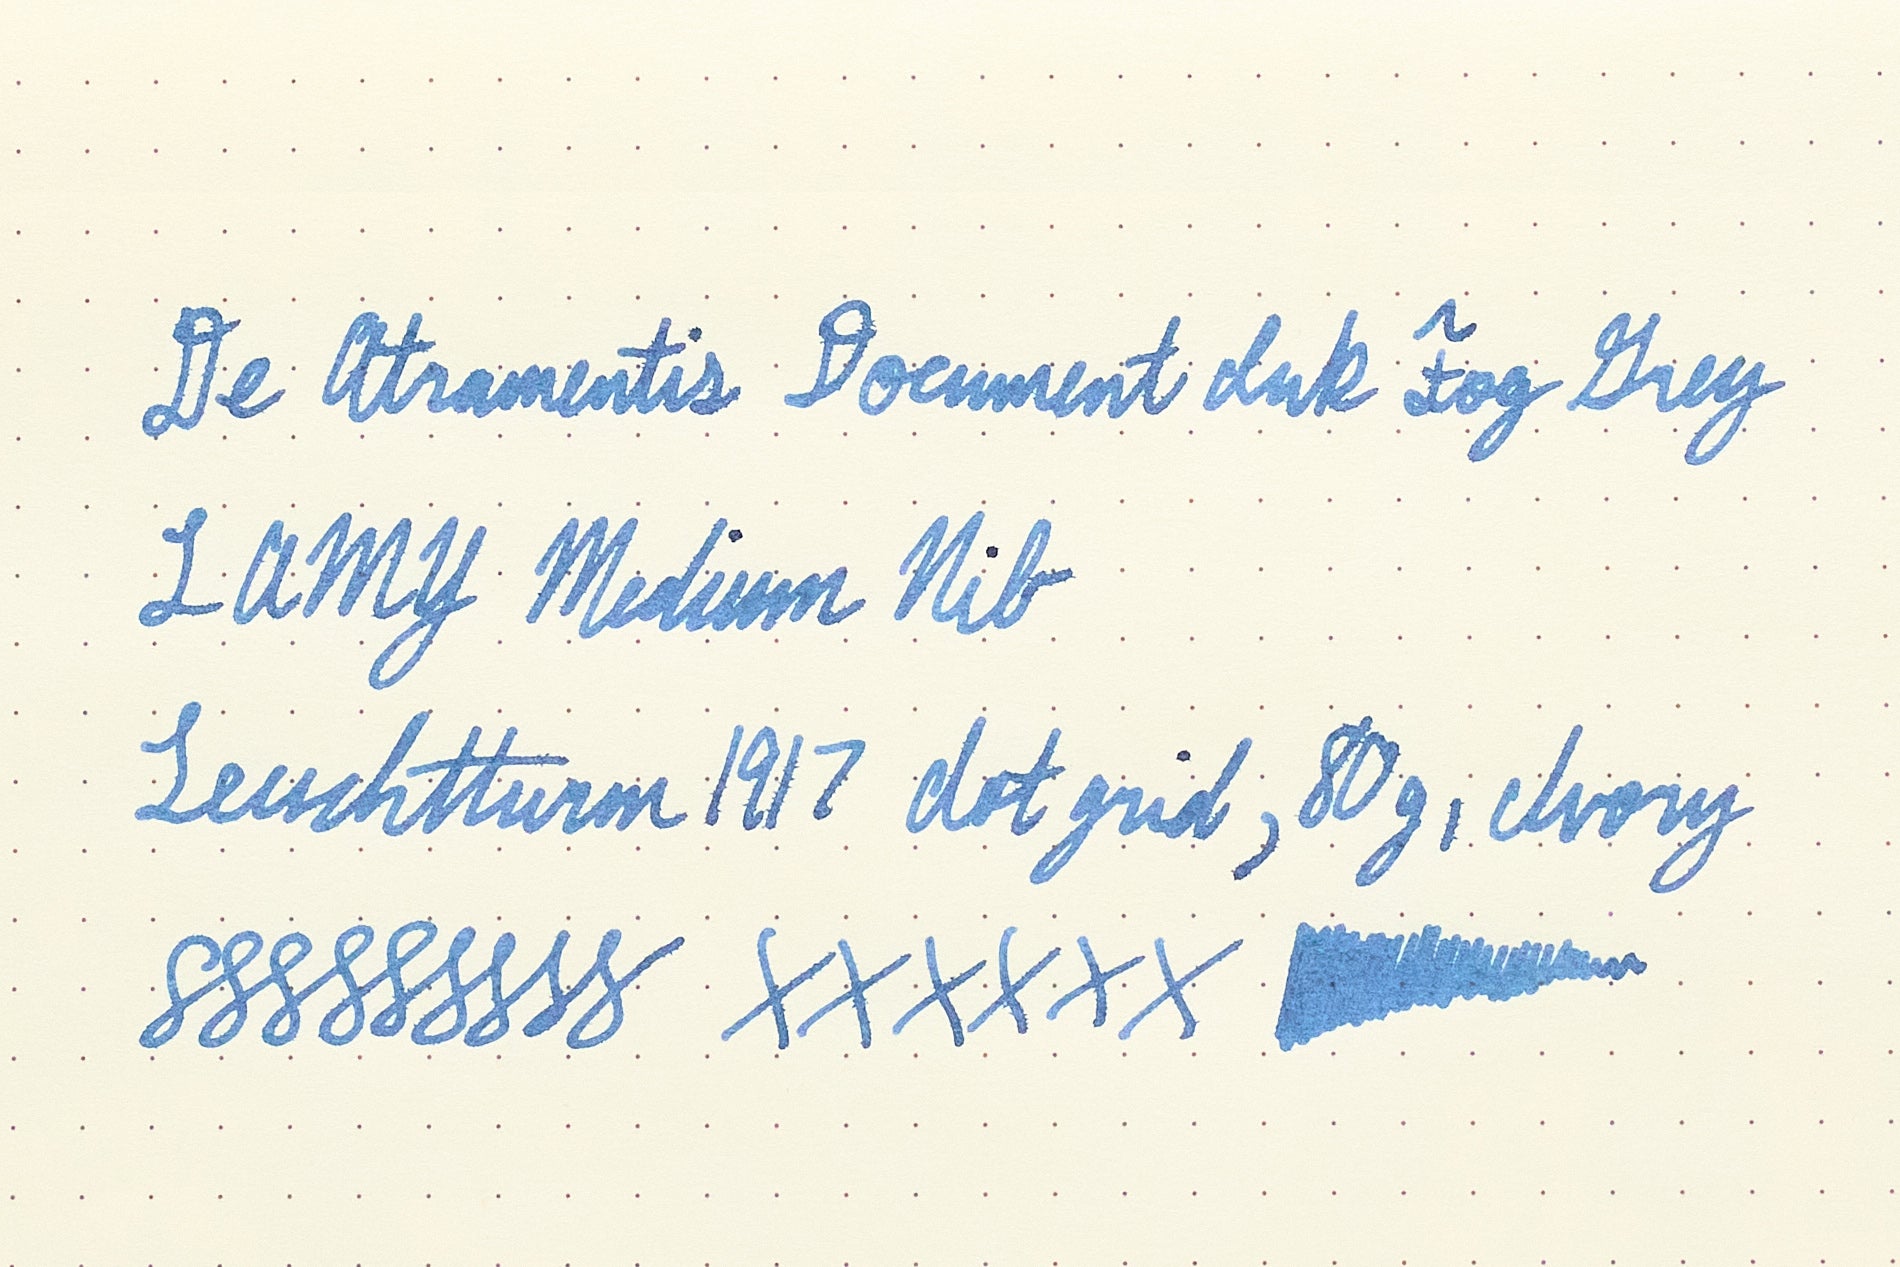 De Atramentis Document Ink Fog Grey
LAMY Medium Nib
Leuchtturm 1917 dot grid, 80g, Ivory